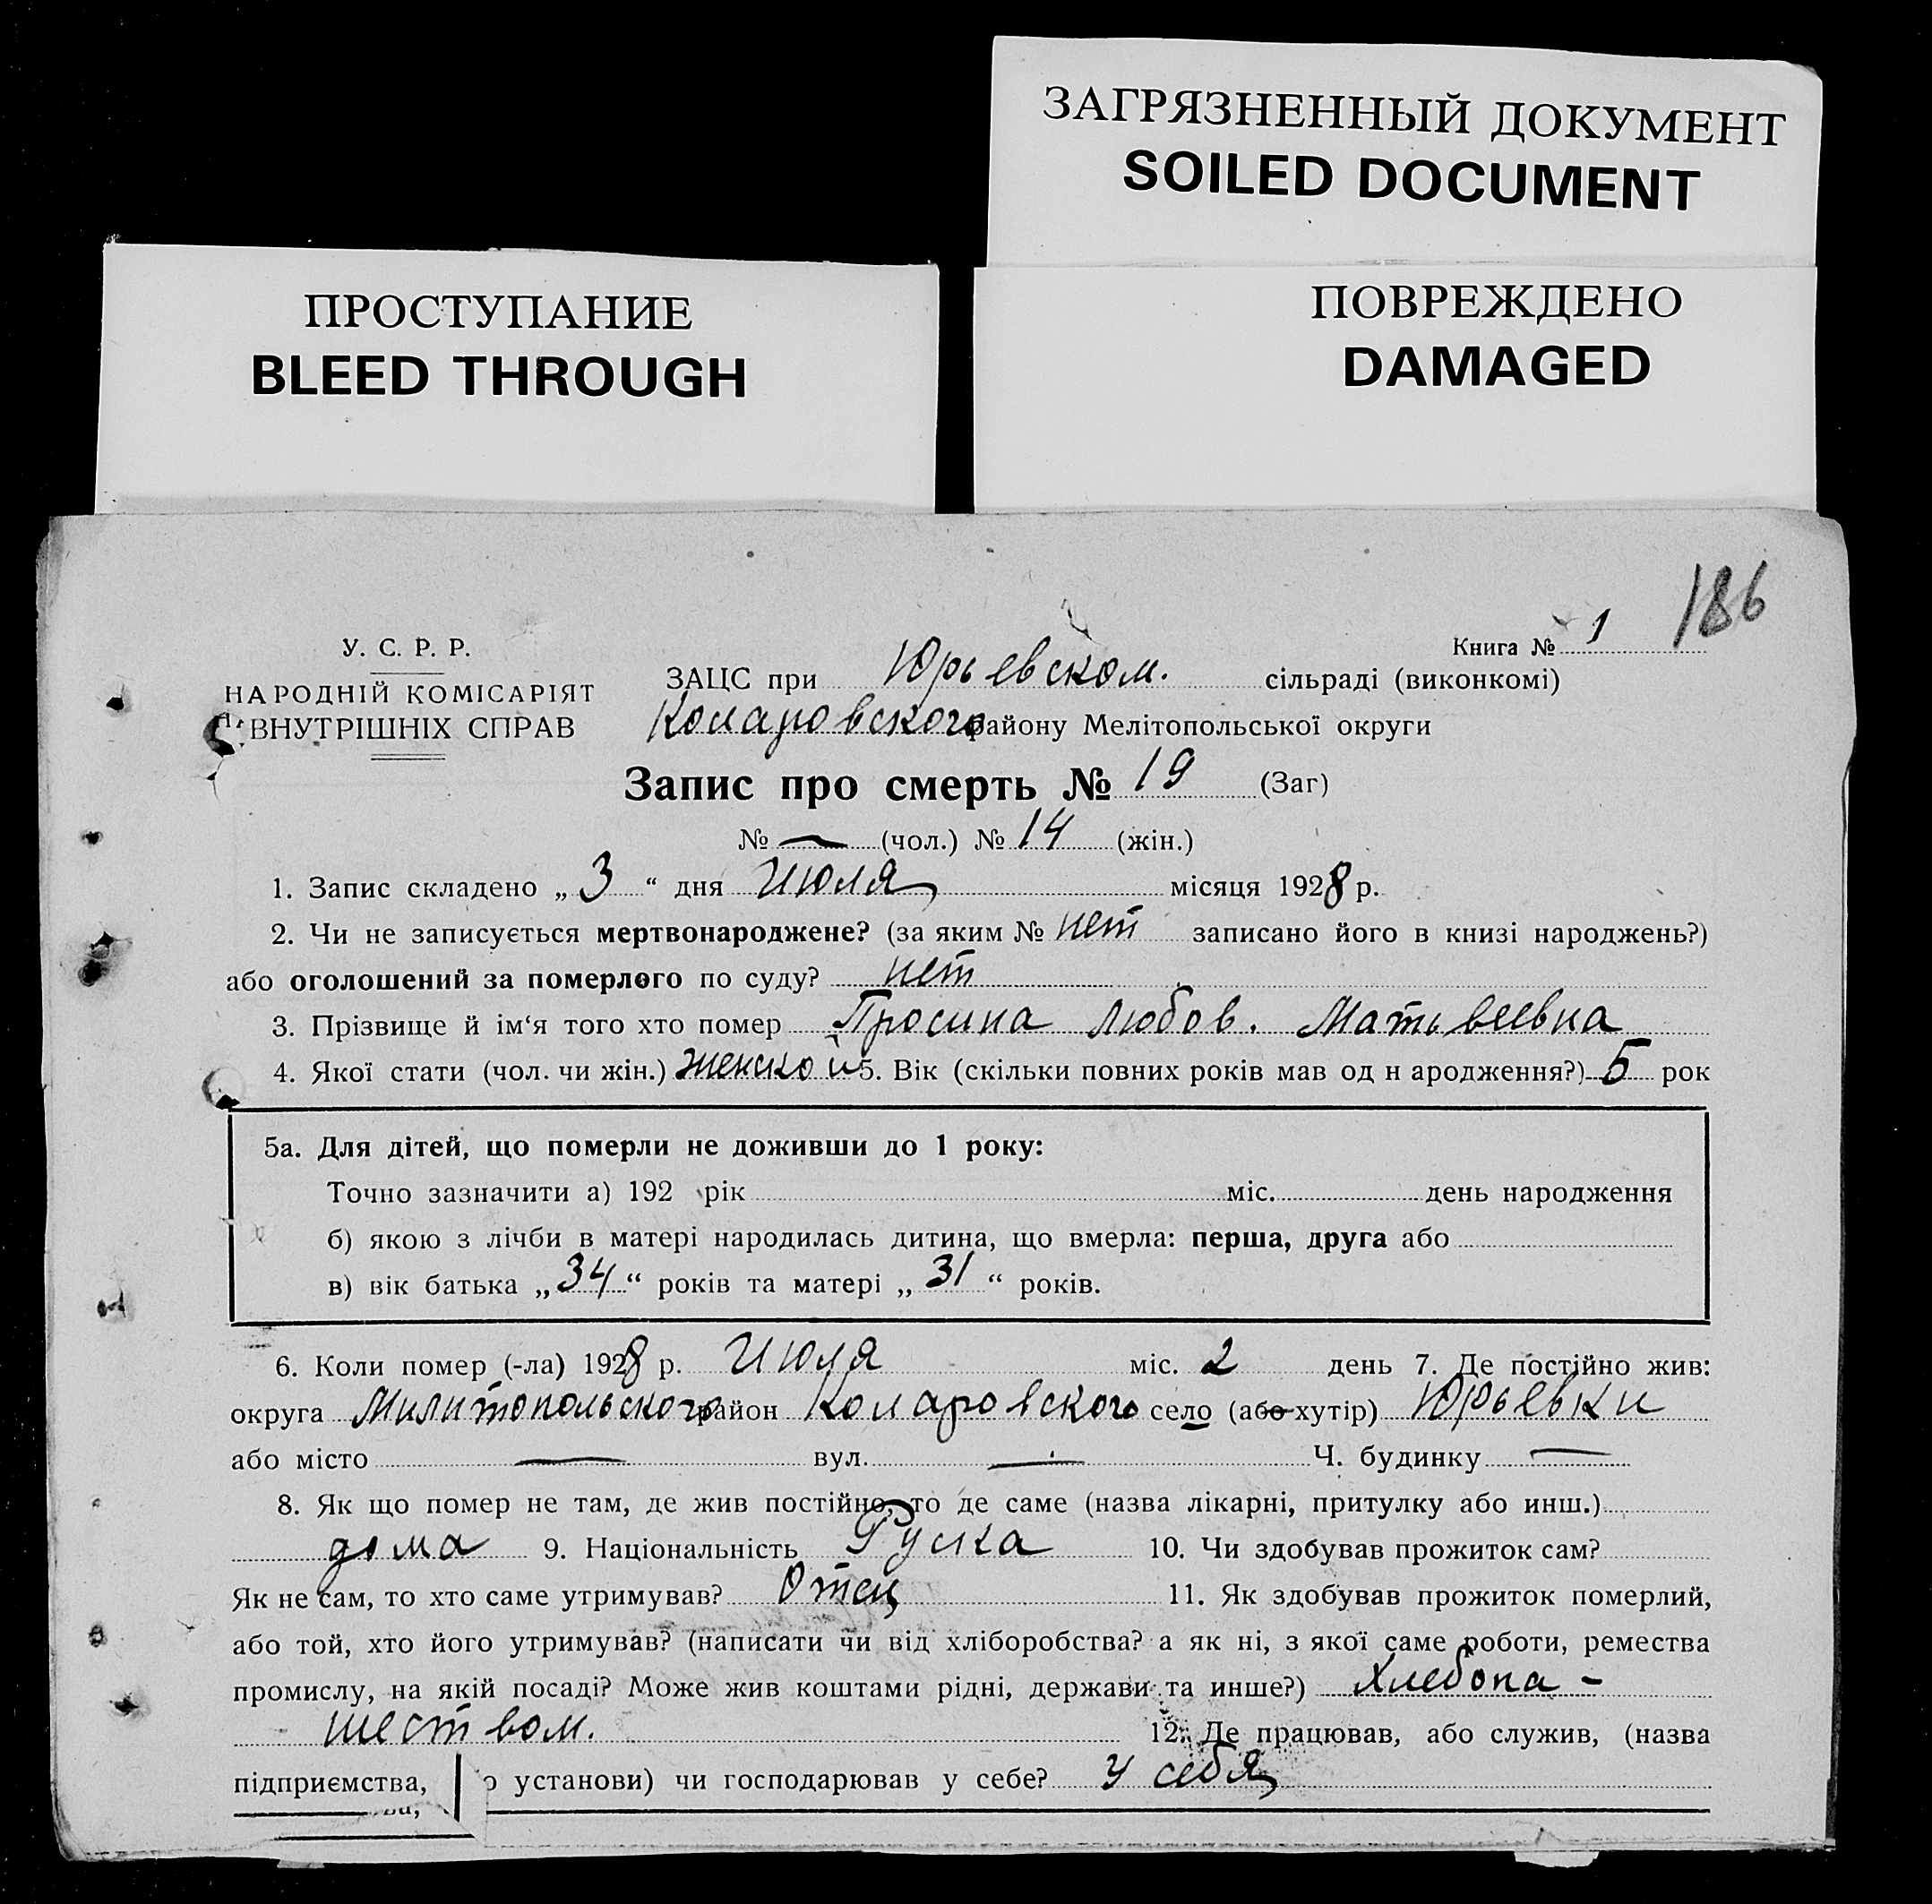 ЗАГРЯЗНЕННЫЙ ДОКУМЕНТ
SOILED DOCUMENT
ПРОСТУПАНИЕ
BLEED THROUGH
ПОВРЕЖДЕНО
DAMAGED
186
Книга № 1
У. С. Р. Р.
НАРОДНІЙ КОМІСАРІЯТ
ВНУТРІШНІХ СПРАВ
ЗАЦС при Юрьевском. сільраді (виконкомі)
Коларовского району Мелітопольської округи
Запис про смерть № 19 (Заг)
№ — (чол.) № 14 (жін.)
1. Запис складено „ 3 “ дня Июля місяця 1928 р.
2. Чи не записується мертвонароджене? (за яким № нет записано його в книзі народжень?)
або оголошений за померлого по суду? нет
3. Прізвище й ім‘я того хто помер Просина Любов. Матьвеевна
4. Якої стати (чол. чи жін.) женской 5. Вік (скільки повних років мав од н ародження?) 5 рок
5а. Для дітей, що померли не доживши до 1 року:
Точно зазначити а) 192 рік міс. день народження
б) якою з лічби в матері народилась дитина, що вмерла: перша, друга або
в) вік батька „ 34 “ років та матері „ 31 “ років.
6. Коли помер (-ла) 1928 р. Июля міс. 2 день 7. Де постійно жив:
округа Милитопольского район Коларовского село (або хутір) Юрьевки
або місто — вул. — Ч. будинку —
8. Як що помер не там, де жив постійно, то де саме (назва лікарні, притулку або инш.)
дома 9. Національність Руска 10. Чи здобував прожиток сам?
Як не сам, то хто саме утримував? Отец 11. Як здобував прожиток померлий,
або той, хто його утримував? (написати чи від хліборобства? а як ні, з якої саме роботи, ремества
промислу, на якій посаді? Може жив коштами рідні, держави та инше?) Хлебопа-
шеством. 12. Де працював, або служив, (назва
підприємства, установи) чи господарював у себе? У себя